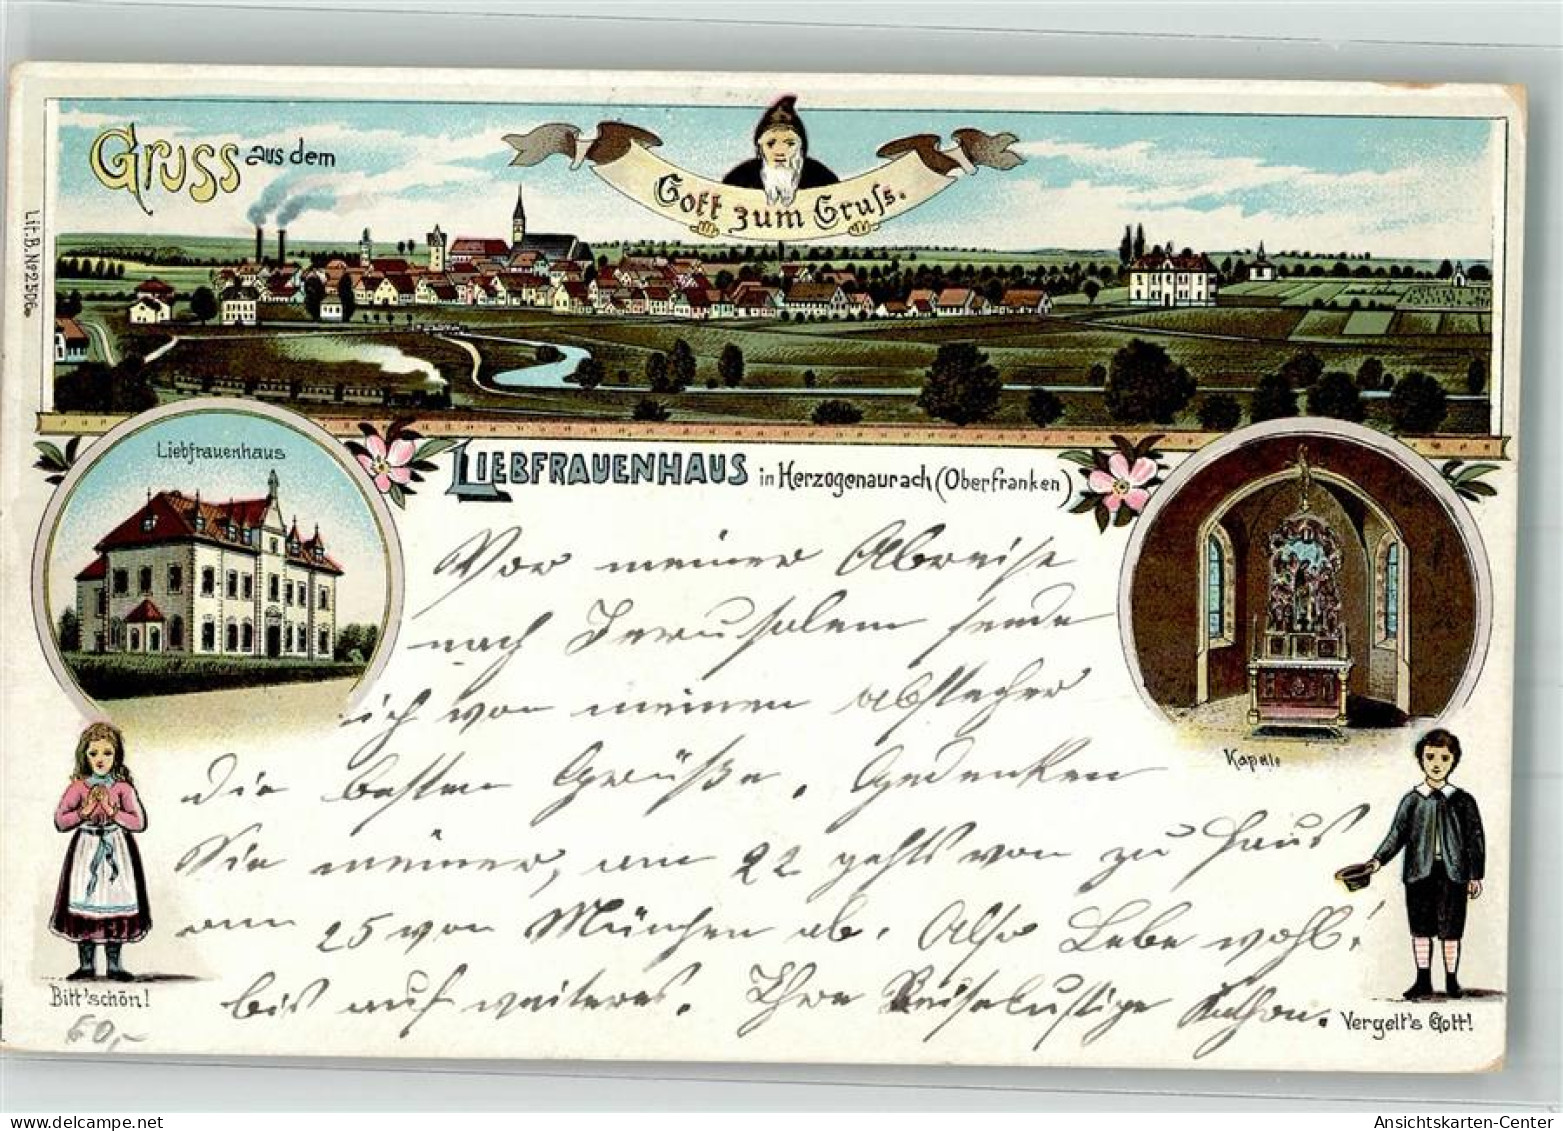 Gruss aus dem
Gott zum Gruss.
Lit. B. No 2506.
Liebfrauenhaus
LIEBFRAUENHAUS in Herzogenaurach (Oberfranken)
Kapelle
Vor meiner Abreise
nach Jerusalem sende
ich von meinen abstecher
die besten Grüße. Gedenken
Sie meiner, am 22 gehts von zu Haus
am 25 von München ab. Also Lebe wohl!
bis auf weiteres. Ihre Reiselustige
Bitt'schön!
60,-
Vergelt's Gott!
AnsichtsKarten-Center